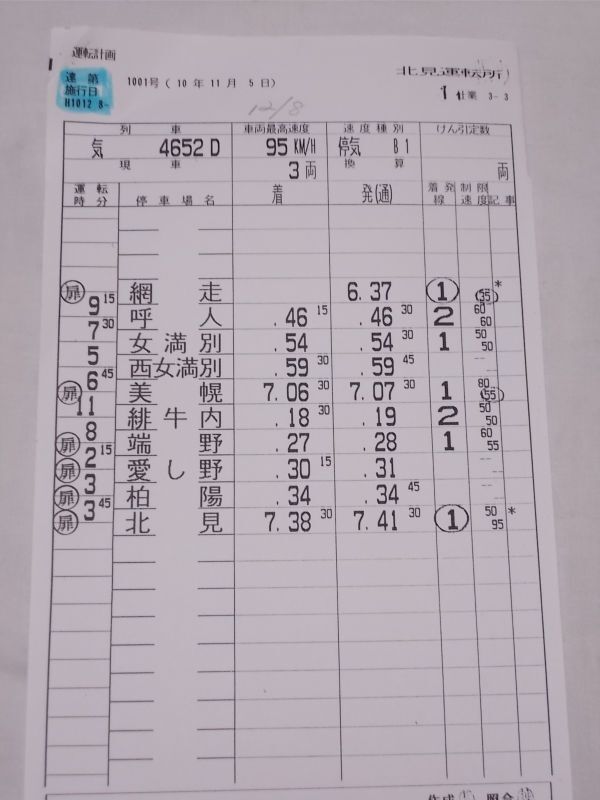 運転計画
達 第 1001号 ( 10 年 11 月 5 日) 北見運転所
施行日 1 仕業 3-3
H1012 8-
12/8
列 車 車両最高速度 速度種別 けん引定数
気 4652D 95 KM/H 停気 B1
現 車 3両 換 算 両
運転時分 停車場名 着 発(通) 着発線 制限速度 記事
網 走 6.37 1 (35) *
扉 9 15
呼 人 .46 15 .46 30 2 60 60
7 30
女満別 .54 .54 30 1 50 50
5
西女満別 .59 30 .59 45 -- --
6 45
美 幌 7.06 30 7.07 30 1 80 (55)
扉 11
緋牛内 .18 30 .19 2 50 50
8
端 野 .27 .28 1 60 55
扉 2 15
愛し野 .30 15 .31 -- --
扉 3
柏 陽 .34 .34 45 -- --
扉 3 45
北 見 7.38 30 7.41 30 1 50 95 *
扉
作成 照合